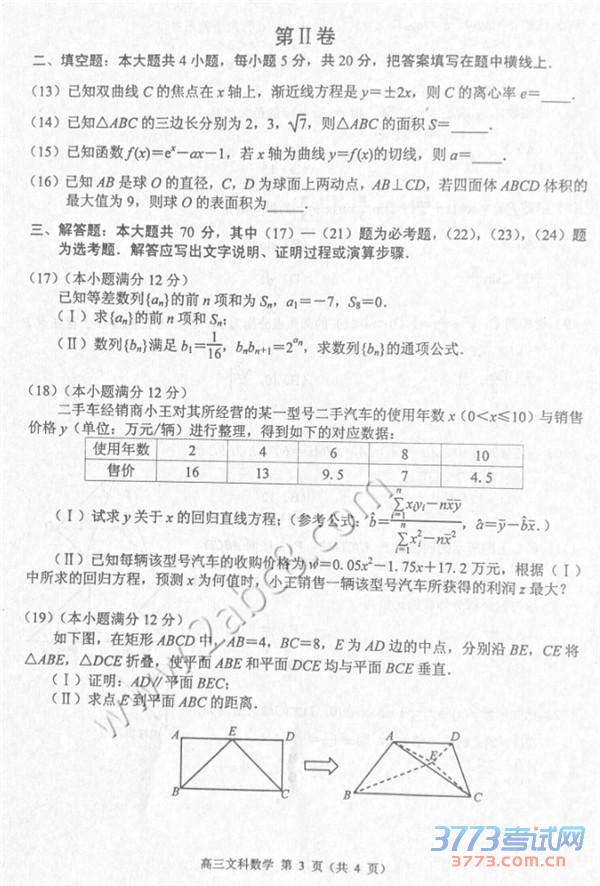 第Ⅱ卷
二、填空题：本大题共4小题，每小题5分，共20分，把答案填写在题中横线上．
（13）已知双曲线C的焦点在x轴上，渐近线方程是y=±2x，则C的离心率e=____．
（14）已知△ABC的三边长分别为2，3，√7，则△ABC的面积S=____．
（15）已知函数f(x)=eˣ-ax-1，若x轴为曲线y=f(x)的切线，则a=____．
（16）已知AB是球O的直径，C，D为球面上两动点，AB⊥CD，若四面体ABCD体积的
最大值为9，则球O的表面积为____．
三、解答题：本大题共70分，其中（17）—（21）题为必考题，（22），（23），（24）题
为选考题．解答应写出文字说明、证明过程或演算步骤．
（17）（本小题满分12分）
已知等差数列{aₙ}的前n项和为Sₙ，a₁=-7，S₈=0．
（Ⅰ）求{aₙ}的前n项和Sₙ；
（Ⅱ）数列{bₙ}满足b₁=1/16，bₙbₙ₊₁=2^{aₙ}，求数列{bₙ}的通项公式．
（18）（本小题满分12分）
二手车经销商小王对其所经营的某一型号二手汽车的使用年数x（0<x≤10）与销售
价格y（单位：万元/辆）进行整理，得到如下的对应数据：
使用年数 2 4 6 8 10
售价 16 13 9.5 7 4.5
（Ⅰ）试求y关于x的回归直线方程；（参考公式：b̂=(∑_{i=1}^{n}xᵢyᵢ-nx̄ȳ)/(∑_{i=1}^{n}xᵢ²-nx̄²)，â=ȳ-b̂x̄．）
（Ⅱ）已知每辆该型号汽车的收购价格为w=0.05x²-1.75x+17.2万元，根据（Ⅰ）
中所求的回归方程，预测x为何值时，小王销售一辆该型号汽车所获得的利润z最大？
（19）（本小题满分12分）
如下图，在矩形ABCD中，AB=4，BC=8，E为AD边的中点，分别沿BE，CE将
△ABE，△DCE折叠，使平面ABE和平面DCE均与平面BCE垂直．
（Ⅰ）证明：AD∥平面BEC；
（Ⅱ）求点E到平面ABC的距离．
A E D
B C
A D
E
B C
高三文科数学 第 3 页（共 4 页）
www.2abc8.com
3773考试网
www.3773.com.cn